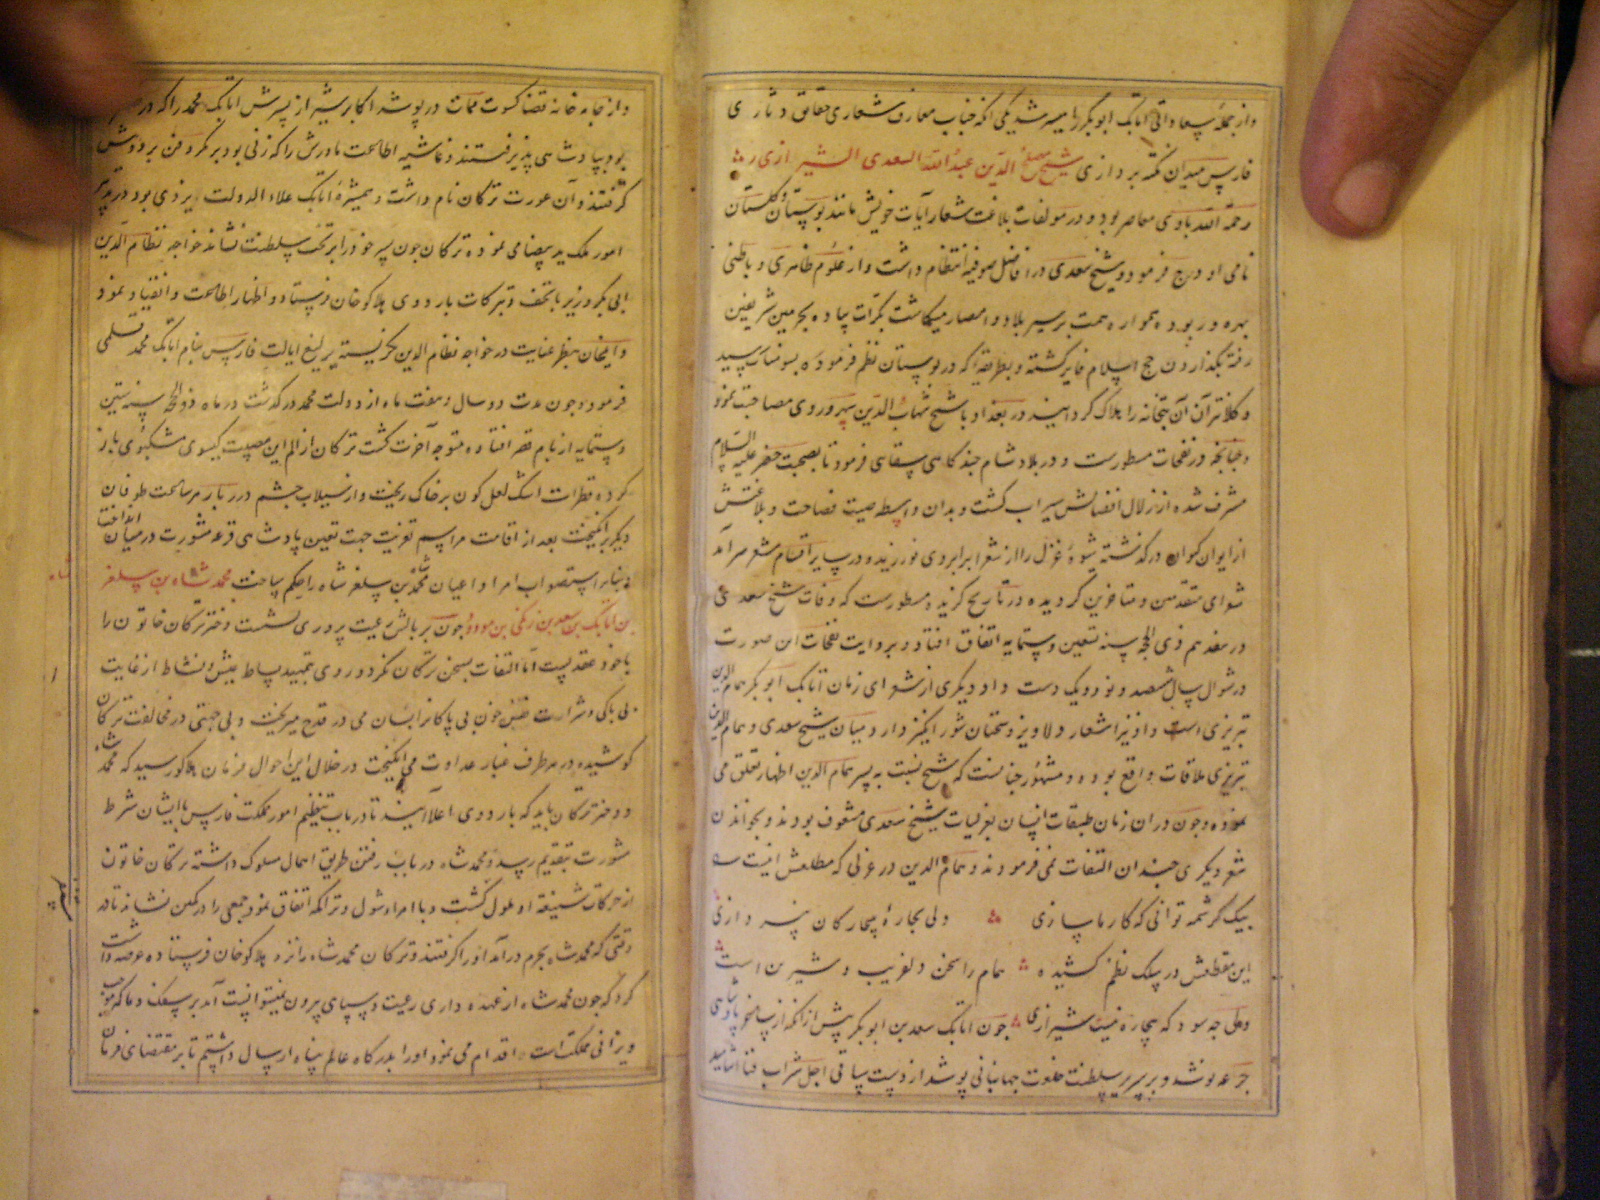 و از جمله سعادات اتابک ابوبکر را میسر شد یکی آنکه جناب معارف شعاری حقایق دثاری
فارس میدان نکته پردازی شیخ مصلح الدین عبدالله السعدی الشیرازی
رحمة الله باوی معاصر بود و در مولفات بلاغت شعار آیات خویش مانند بوستان و گلستان
نامی او درج فرمود و شیخ سعدی در افاضل صوفیه انتظام داشت و از علوم ظاهری و باطنی
بهره ور بوده همواره همت بر سیر بلاد و امصار میگماشت بکرات پیاده بحرمین شریفین
رفته بگذاردن حج اسلام فایز گشته و بطریقه که در بوستان نظم فرموده بسومنات رسید
و کلانتر آن بتخانه را هلاک گردانید در بغداد با شیخ شهاب الدین سهروردی مصاحبت نمود
و چنانچه در نفحات مسطورست و در بلاد شام چندگاهی سقایی فرمود تا بصحبت خضر علیه السلام
مشرف شده از زلال افضالش سیراب گشت و بدان واسطه صیت فصاحت و بلاغتش
از ایوان کیوان درگذشته شیوه غزل را از شعرا برابر وی نورزیده و در سایر اقسام شعر سرآمد
شعرای متقدمین و متاخرین گردیده در تاریخ گزیده مسطورست که وفات شیخ سعدی
در هفدهم ذی الحجه سنه تسعین و ستمایه اتفاق افتاد و بروایت نفحات این صورت
در شوال سال ششصد و نود و یک دست داد و دیگری از شعرای زمان اتابک ابوبکر همام الدین
تبریزی است و او نیز اشعار دلاویز و سخنان شورانگیز دارد میان شیخ سعدی و همام الدین
تبریزی ملاقات واقع بوده و مشهور چنانست که شیخ نسبت به پسر همام الدین اظهار تعلق می
نموده و چون در آن زمان طبقات انسان بغزلیات شیخ سعدی مشعوف بودند و بخواندن
شعر دیگری چندان التفات نمی فرمودند و همام الدین در غزلی که مطلعش اینست
بیک کرشمه توانی که کار ما سازی ولی بچاره بیچارگان نپردازی
این مقطعش در سلک نظم کشیده همام را سخن دلفریب و شیرین است
ولی چه سود که بیچاره نیست شیرازی چون اتابک سعد بن ابوبکر پیش از آنکه از ساغر پادشاهی
جرعه نوشد و بر سریر سلطنت خلعت جهانبانی پوشد از دست ساقی اجل شراب فنا آشامید
و از جامه خانه قضا کسوت ممات در پوشید اکابر شیراز پسرش اتابک محمد را که در
بود بپادشاهی پذیرفتند و غاشیه اطاعت مادرش را که زنی بود بر مکر و فن بر دوش
گرفتند و آن عورت ترکان نام داشت و همشیره اتابک علاء الدوله یزدی بود در تدبیر
امور ملک ید بیضا می نمود ترکان چون پسر خود را بر تخت سلطنت نشاند خواجه نظام الدین
ابی بکر وزیر با تحف و تبرکات باردوی هلاکو خان فرستاد و اظهار اطاعت و انقیاد نمود
و ایلخان بنظر عنایت در خواجه نظام الدین نگریسته یرلیغ ایالت فارس بنام اتابک محمد قلمی
فرمود و چون مدت دو سال و هفت ماه از دولت محمد درگذشت در ماه ذی الحجه سنه ستین
و ستمایه از بام قصر افتاده متوجه آخرت گشت ترکان از الم این مصیبت گیسوی مشکبوی باز
کرده قطرات اشک لعل گون بر خاک ریخت و از سیلاب چشم در ربار مرساحت طوفان
دیگر برانگیخت بعد از اقامت مراسم تعزیت جهت تعیین پادشاهی قرعه مشورت در میان انداخت
و بنابر استصواب امرا و اعیان محمد شاه بن سلغر شاه را حاکم ساخت محمد شاه بن سلغر
بن اتابک سعد بن زنگی بن مودود چون بر بالش رعیت پروری نشست دختر ترکان خاتون را
با خود عقد بست اما التفات بسخن ترکان نکرد و روی بتمهید بساط عیش و نشاط از غایت
بی باکی و شرارت نفس خون بی پاکان را بسان می در قدح میریخت و بی جهتی در مخالفت ترکان
کوشیده در هر طرف غبار عداوت می انگیخت در خلال این احوال فرمان هلاکو رسید که محمد شاه
و دختر ترکان باید که باردوی اعلا آیند تا در باب تنظیم امور مملکت فارس با ایشان شرط
مشورت بتقدیم رسد و محمد شاه در باب رفتن طریق اهمال مسلوک داشته ترکان خاتون
از حرکات شنیعه او ملول گشت و با امراء شول و تراکمه اتفاق نمود جمعی را در کمین نشاند تا در
وقتی که محمد شاه بحرم درآمد او را گرفتند و ترکان محمد شاه را نزد هلاکو خان فرستاده عرضه داشت
کرد که چون محمد شاه از عهده داری رعیت و سپاهی بیرون نمیتوانست آمد بر سفک دما که موجب
ویرانی مملکت است اقدام می نمود او را بدرگاه عالم پناه ارسال داشتیم تا بر مقتضای فرمان